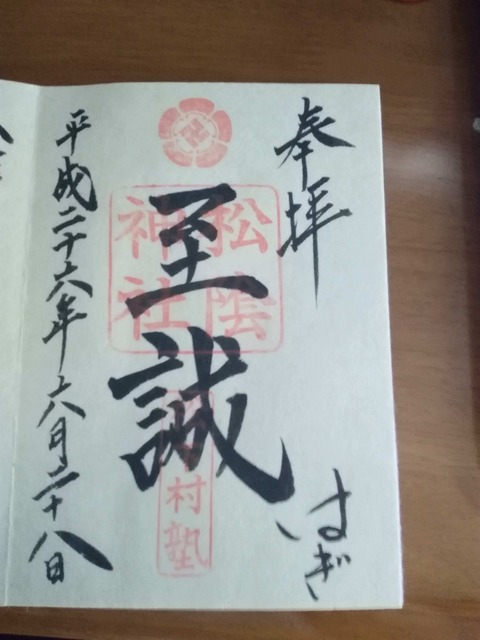 奉拝
はぎ
松陰
神社
至誠
村塾
平成二十六年六月二十八日